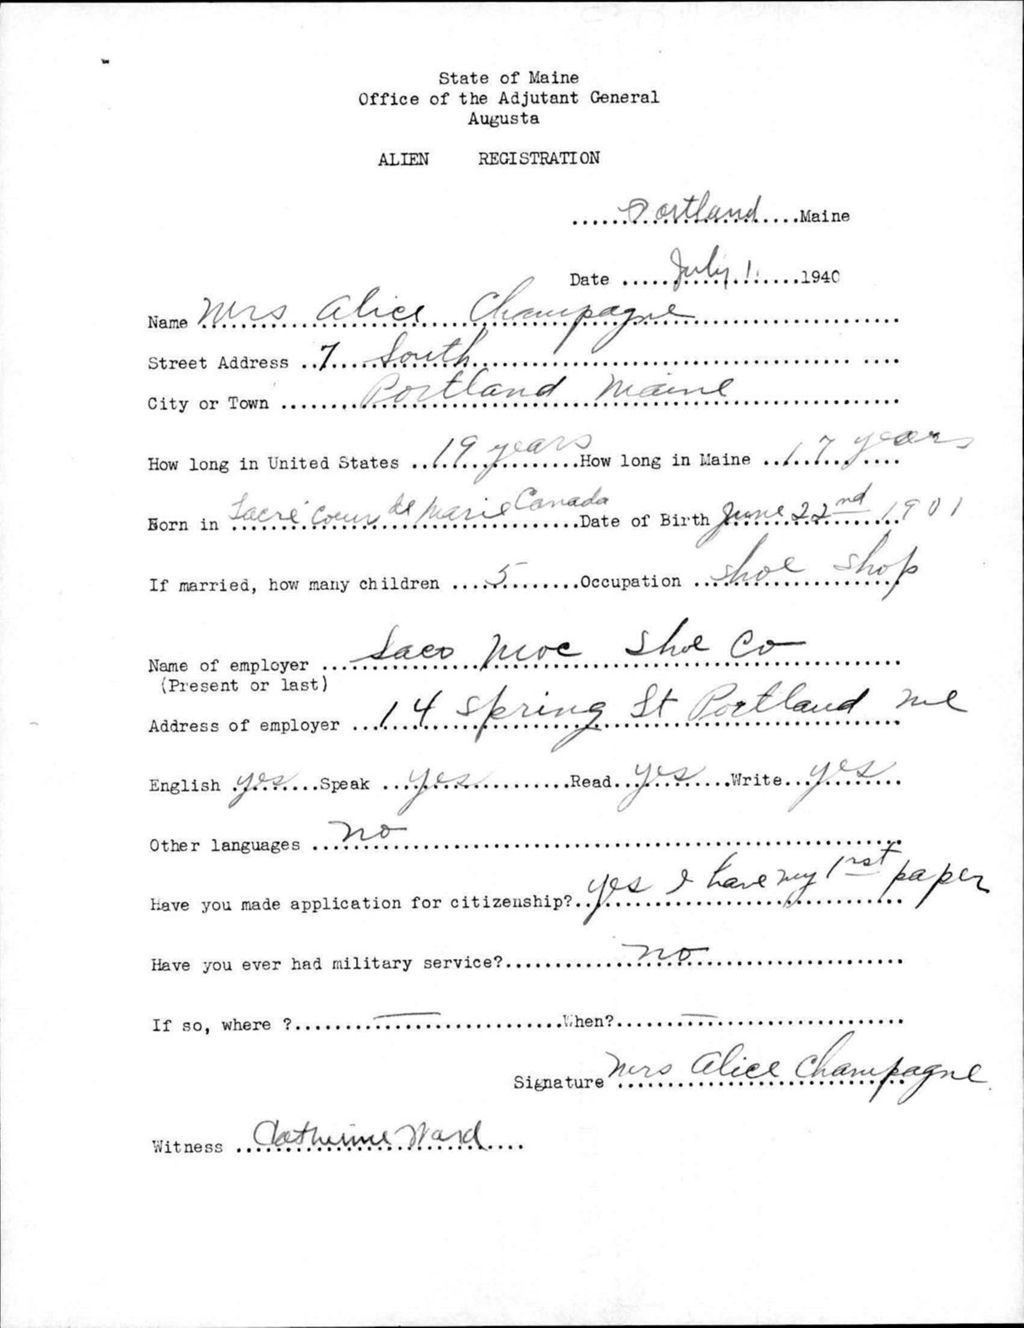 State of Maine
Office of the Adjutant General
Augusta
ALIEN REGISTRATION
Portland Maine
Date July 1. 1940
Name Mrs Alice Champagne
Street Address 7 South
City or Town Portland Maine
How long in United States 19 years How long in Maine 17 years
Born in Sacré Coeur de Marie Canada Date of Birth June 22nd 1901
If married, how many children 5 Occupation Shoe Shop
Name of employer Saco Moc Shoe Co
(Present or last)
Address of employer 14 Spring St Portland Me
English yes Speak yes Read yes Write yes
Other languages no
Have you made application for citizenship? yes I have my 1rst paper
Have you ever had military service? no
If so, where ? — When? —
Signature Mrs Alice Champagne
Witness Catherine Ward